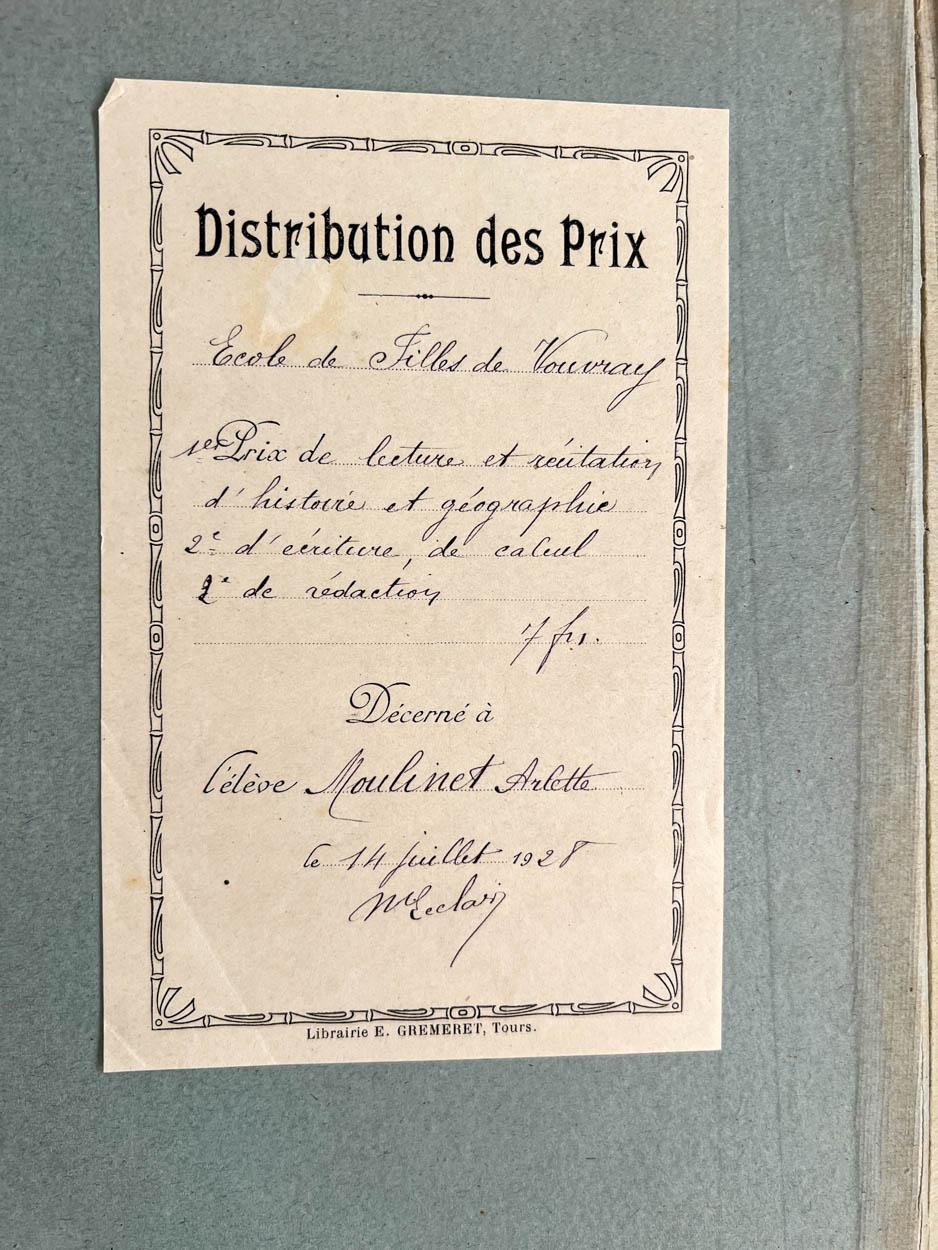 Distribution des Prix
Ecole de Filles de Vouvray
1er Prix de lecture et récitation
d'histoire et géographie
2e d'écriture, de calcul
2e de rédaction
7 frs.
Décerné à
l'élève Moulinet Arlette
le 14 juillet 1928
Leclair
Librairie E. GREMERET, Tours.